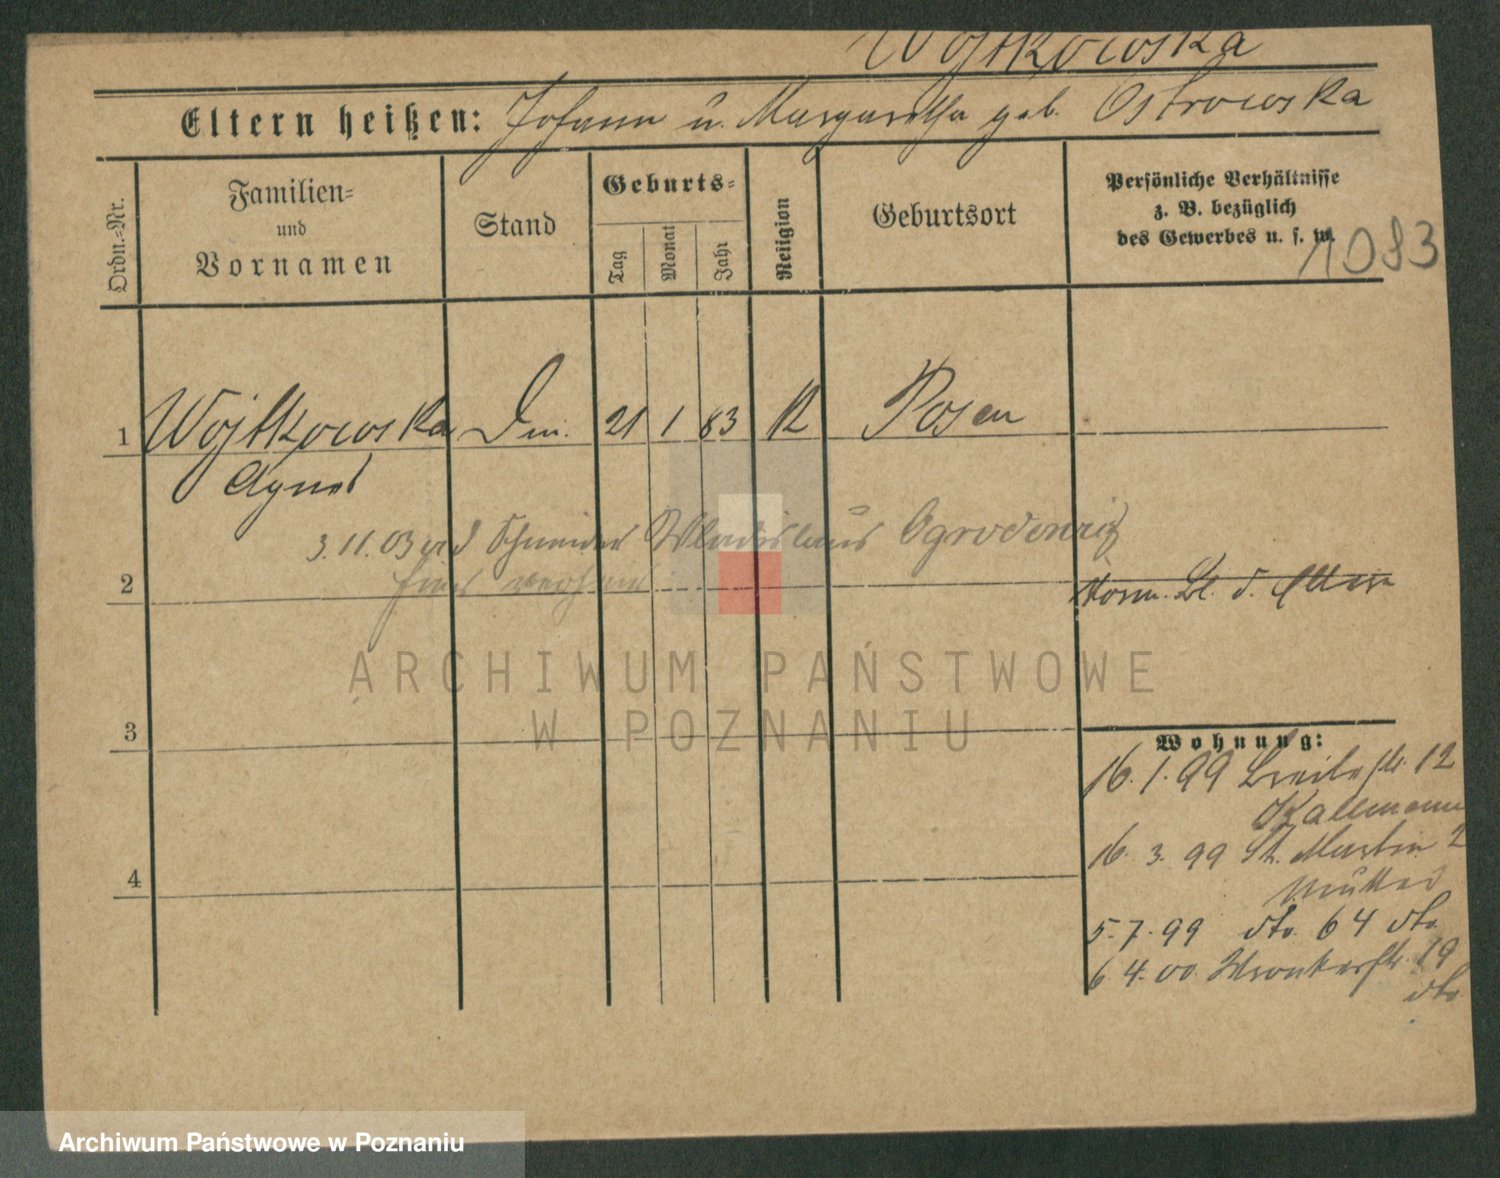 Wojtkowska
Eltern heißen: Johann u. Margaretha geb. Ostrowska
Ordn.-Nr.
Familien-
und
Vornamen
Stand
Geburts-
Tag
Monat
Jahr
Religion
Geburtsort
Persönliche Verhältnisse
z. B. bezüglich
des Gewerbes u. s. w.
1083
1 Wojtkowska Dm. 21 1 83 K Posen
Agnes
3.11.03 Schneider Wladislaus Ogrodowicz
2
Borm. Bl. d. Eltern
ARCHIWUM PAŃSTWOWE
W POZNANIU
3
Wohnung:
16. 1. 99 Breitestr. 12
Kallmann
16. 3. 99 St. Martin 2
Mutter
4
5. 7. 99 dto. 64 dto.
6 4. 00 Wronkerstr. 19
dto
Archiwum Państwowe w Poznaniu